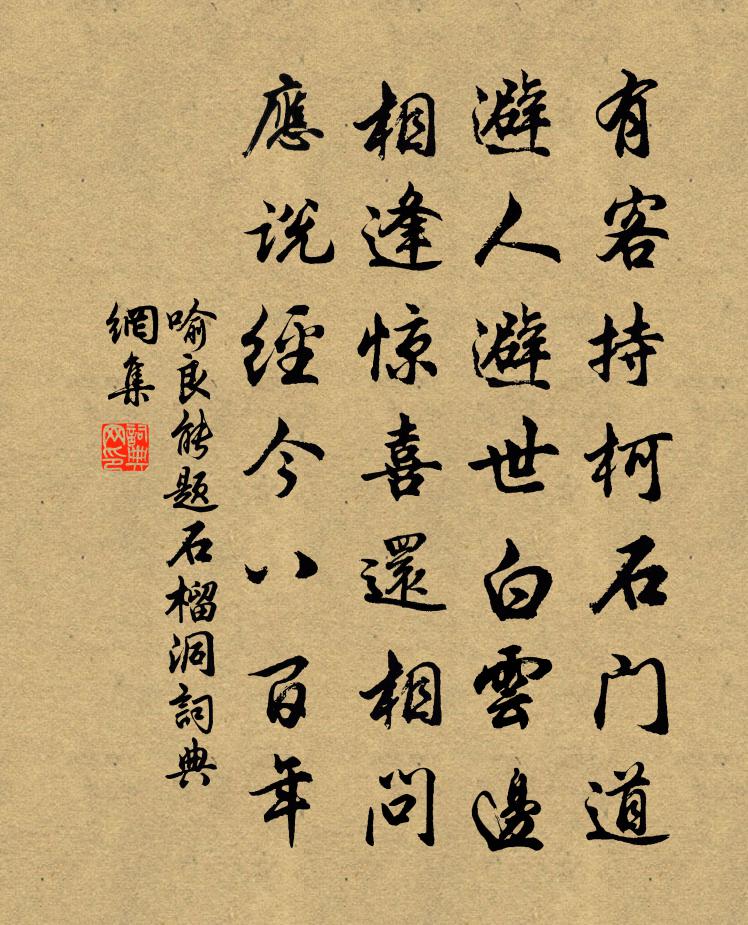 有客持柯石门道
避人避世白雲邊
相逢惊喜還相問
應说經今八百年
喻良能题石榴洞詞典
網集
詞典
网印